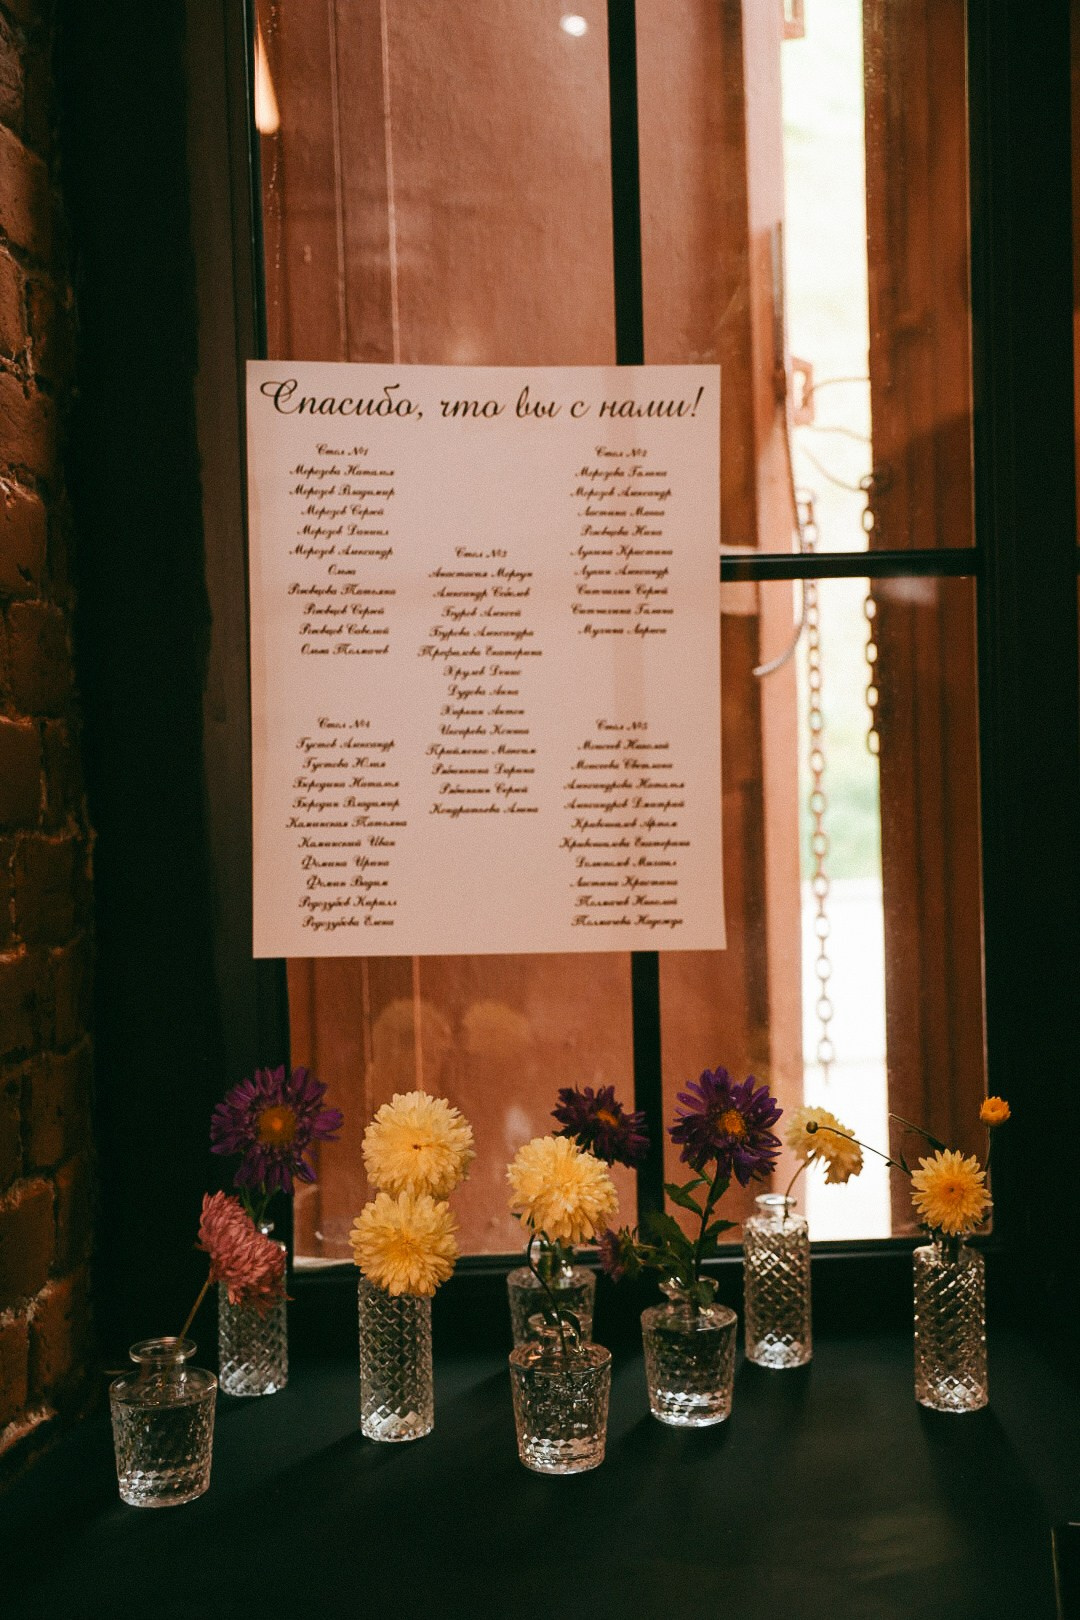 Спасибо, что вы с нами!
Стол №1
Морозова Наталья
Морозов Владимир
Морозов Сергей
Морозов Даниил
Морозов Александр
Ольга
Рязанцева Татьяна
Сергей
Савелий
Ольга Толмачев
Стол №2
Морозова Галина
Морозов Александр
Ластина Маша
Нина
Лунгина Кристина
Александр
Ситчихин Сергей
Ситчихина Галина
Мухина Лариса
Стол №3
Анастасия Моргун
Александр Соболев
Буров Алексей
Бурова Александра
Трефилова Екатерина
Хрулев Денис
Дудова Анна
Антон
Ксения
Максим
Рябинина Дарина
Рябинин Сергей
Кондратьева Алина
Стол №4
Густов Александр
Густова Юлия
Бородина Наталья
Бородин Владимир
Каминская Татьяна
Каминский Иван
Фомина Ирина
Фомин Вадим
Редозубов Кирилл
Редозубова Елена
Стол №5
Моисеев Николай
Моисеева Светлана
Александрова Наталья
Александров Дмитрий
Кривошапов Артем
Кривошапова Екатерина
Михаил
Ластина Кристина
Толмачев Николай
Толмачева Надежда